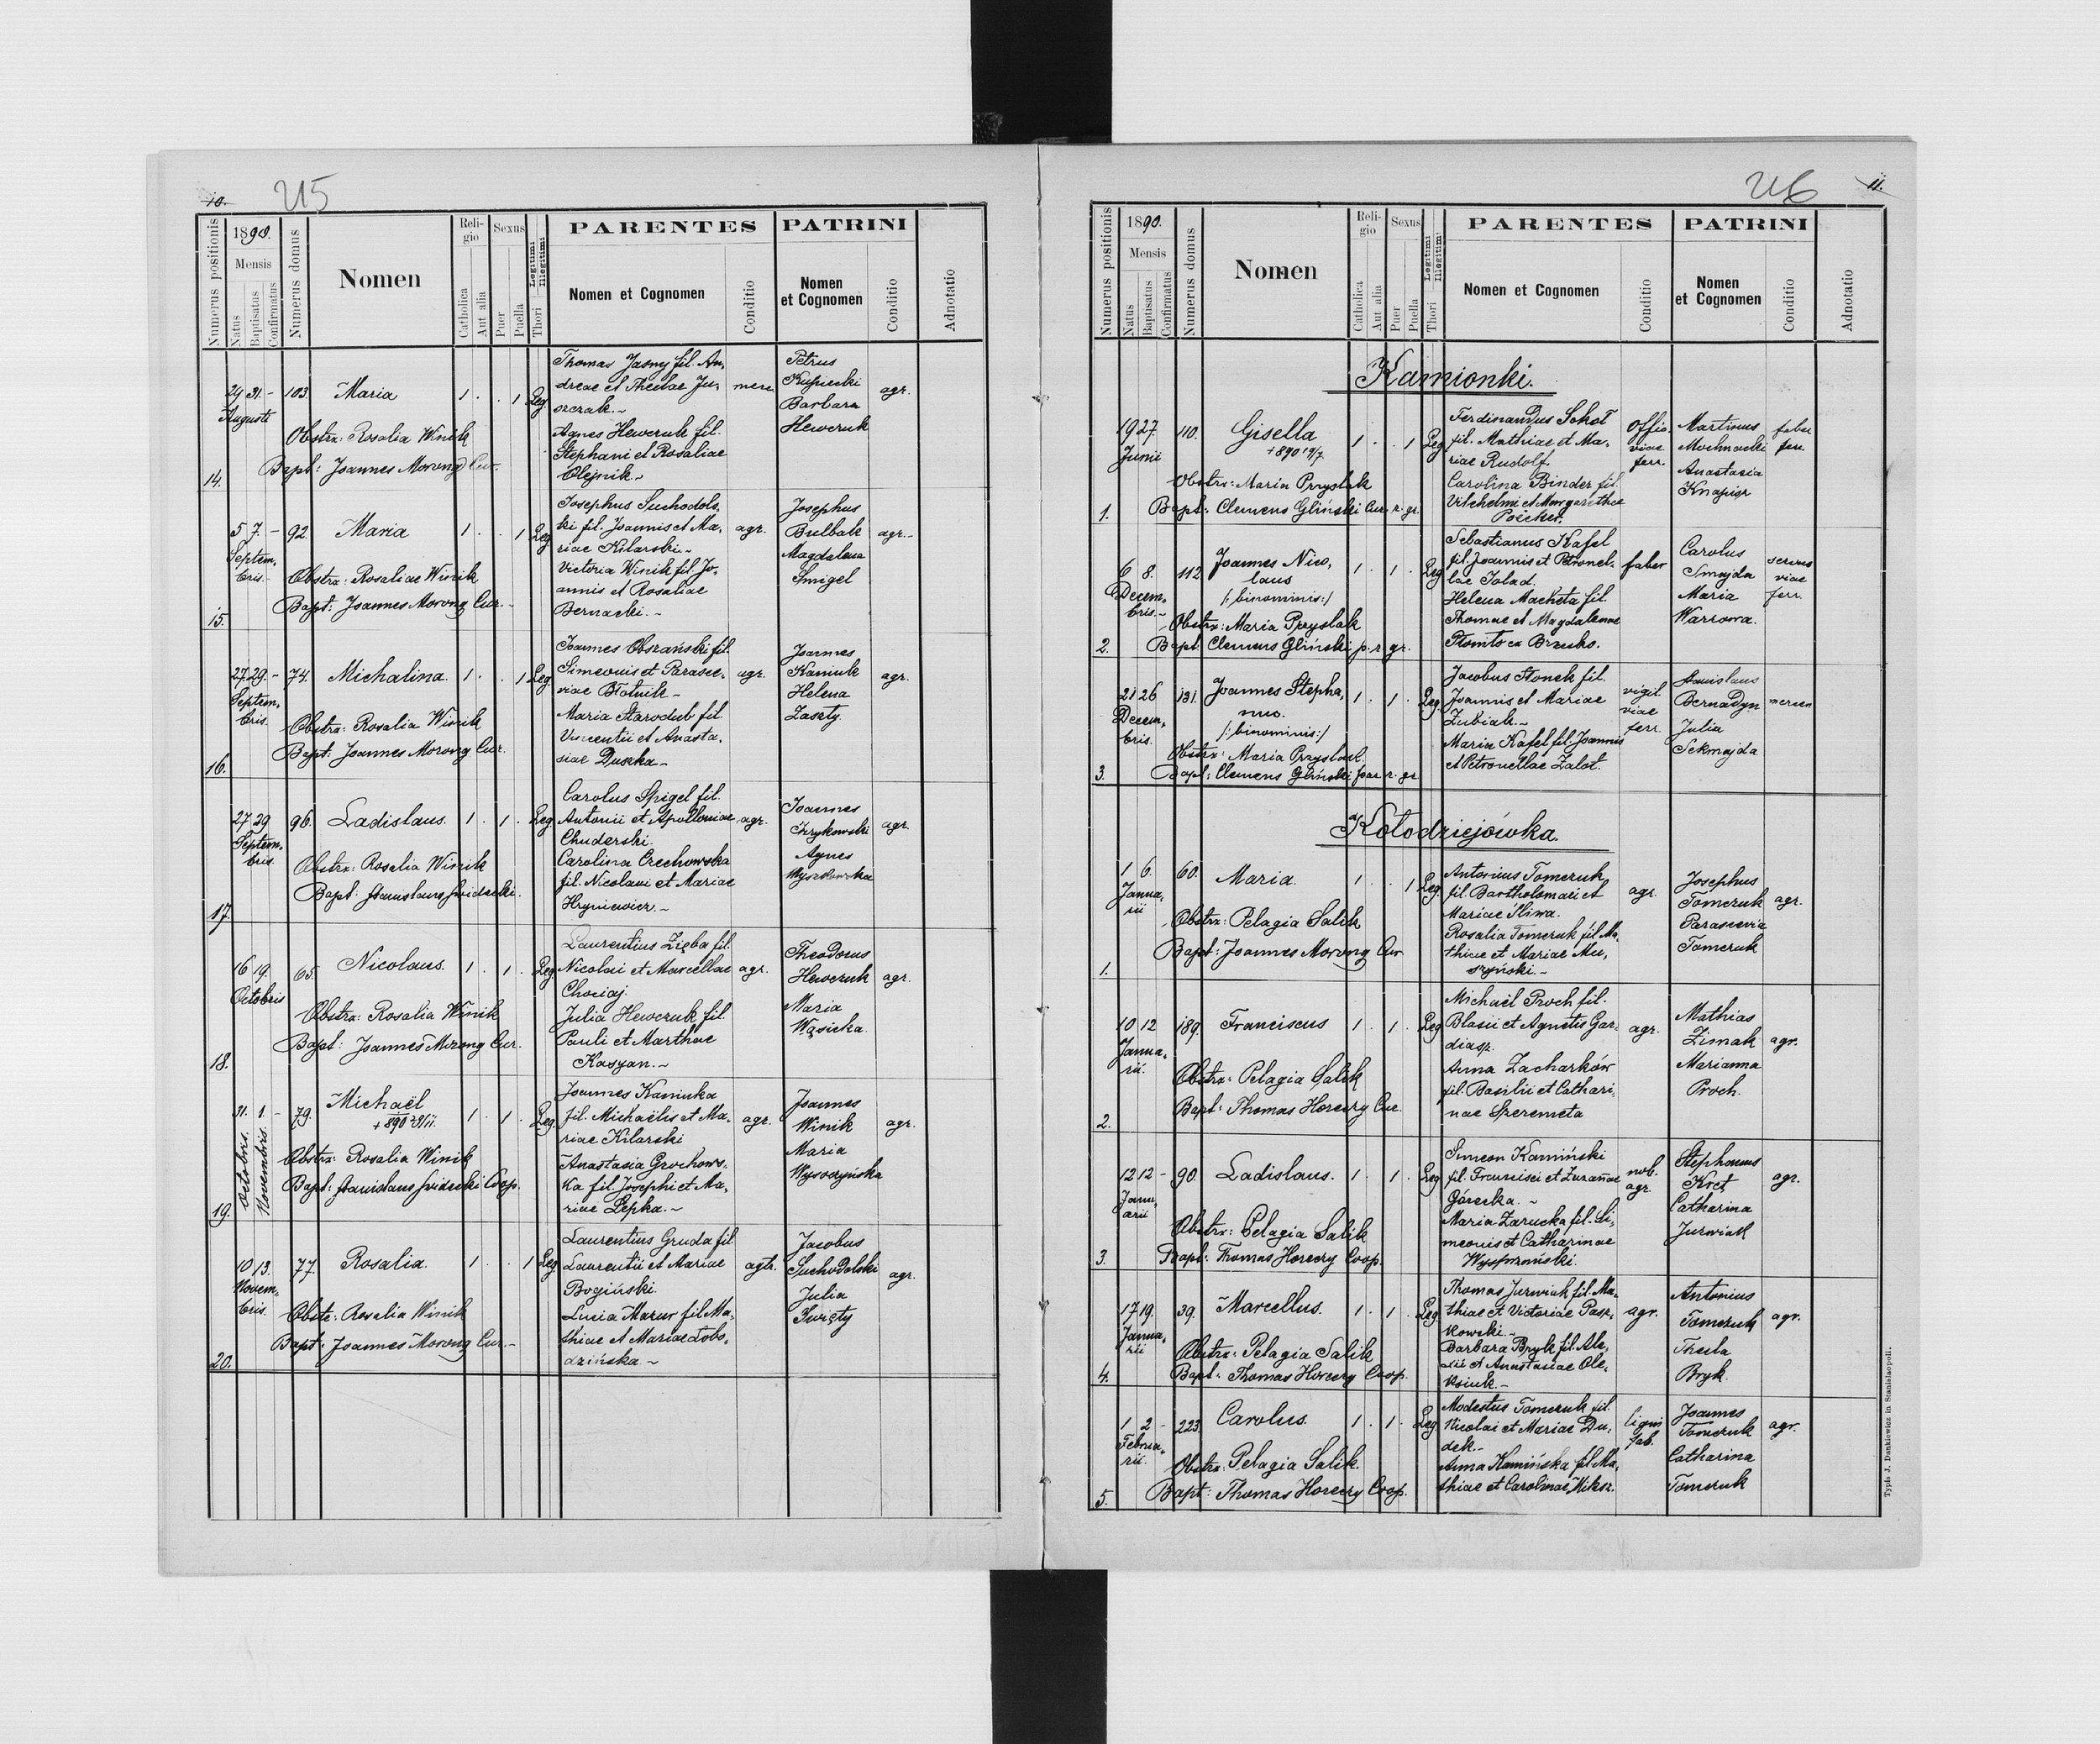 10.
215
Numerus positionis
1890.
Mensis
Natus
Baptisatus
Confirmatus
Numerus domus
Nomen
Religio
Catholica
Aut alia
Sexus
Puer
Puella
Thori
Legitimi
Illegitimi
PARENTES
Nomen et Cognomen
Conditio
PATRINI
Nomen
et Cognomen
Conditio
Adnotatio
14.
29 31. -
Augusti
103.
Maria
1 . . 1 Leg
Obstrx: Rosalia Winik
Bapt: Joannes Morong Cur.
Thomas Jasny fil. An,
dreae et Theclae Ju,
szczak. -
Agnes Hewczuk fil.
Stephani et Rosaliae
Olejnik. -
Petrus
Kupiecki
Barbara
Hewczuk
agr.
15.
5 7. -
Septem,
bris.
92.
Maria
1 . . 1 Leg
Obstrx: Rosaliae Winik
Bapt: Joannes Morong Cur. -
Josephus Suchodols,
ki fil. Joannis et Ma,
riae Kilarski. -
Victoria Winik fil. Jo,
annis et Rosaliae
Bernacki. -
agr.
Josephus
Bulbak
Magdalena
Smigel
agr. -
16.
27 29. -
Septem,
bris.
74.
Michalina.
1 . . 1 Leg
Obstrx: Rosalia Winik
Bapt: Joannes Morong Cur.
Joannes Obszański fil.
Simeonis et Parasce,
viae Błotnik -
Maria Starodub fil.
Vincentii et Anasta,
siae Duszka -
agr.
Joannes
Kaniuk
Helena
Zaszty.
agr.
17.
27 29
Septem,
bris.
96.
Ladislaus.
1 . 1 . Leg.
Obstrx: Rosalia Winik
Bapt: Stanislaus
Carolus Spigel fil.
Antonii et Apolloniae
Chuderski.
Carolina Orechowska
fil. Nicolaui et Mariae
Hryniewicz. -
agr.
Joannes
Agnes
Wyszkowska
agr.
18.
16 19.
Octobris
65.
Nicolaus.
1 . 1 . Leg
Obstrx: Rosalia Winik
Bapt: Joannes Morong Cur.
Laurentius Zięba fil.
Nicolai et Marcellae
Chociaj.
Julia Hewczuk fil.
Pauli et Marthae
Kasyan. -
agr.
Theodorus
Hewczuk
Maria
Wąsicka.
agr.
19.
31. 1. -
Octobris.
Novembris.
79.
Michaël
1 . 1 . Leg.
Obstrx: Rosalia Winik
Bapt: Stanislaus Coop.
Joannes Kaniuka
fil. Michaëlis et Ma,
riae Kilarski
Anastasia Grochows,
ka fil. Josephi et Ma,
riae Lepka. -
agr.
Joannes
Winik
Maria
Wysoczyńska
agr.
20.
10 13.
Novem,
bris.
77.
Rosalia.
1 . . 1 Leg
Obstr: Rosalia Winik
Bapt: Joannes Morong Cur. -
Laurentius Gruda fil
Laurentii et Mariae
Bogiński.
Lucia Mazur fil. Ma,
thiae et Mariae Łobo,
dzińska -
Jacobus
Suchodolski
Julia
Święty
agr.
216
11.
Numerus positionis
1890.
Mensis
Natus
Baptisatus
Confirmatus
Numerus domus
Nomen
Religio
Catholica
Aut alia
Sexus
Puer
Puella
Thori
Legitimi
Illegitimi
PARENTES
Nomen et Cognomen
Conditio
PATRINI
Nomen
et Cognomen
Conditio
Adnotatio
Kamionki.
1.
19 27.
Junii
110.
Gisella
1 . . 1 Leg
Obstrx: Maria Przyslak
Bapt: Clemens Gliński Cur. r. gr.
Ferdinandus Sokoł
fil. Mathiae et Ma,
riae Rudolf.
Carolina Binder fil.
Vilchelmi et Margarethae
Offic.
viae
ferr.
Martinus
Mochnacki
Anastasia
Knapier
faber
ferr.
2.
6 8.
Decem,
bris. -
112
Joannes Nico,
laus
/: binominis :/
1 . 1 . Leg
Obstrx: Maria Przyslak
Bapt: Clemens Gliński p. r. gr.
Sebastianus Kafel
fil. Joannis et Petronel,
lae Zalad.
Helena Macheta fil.
Thomae et Magdalenae
faber
Carolus
Smajda
Maria
Warzowa.
servus
viae
ferr.
3.
21 26
Decem,
bris.
131.
Joannes Stepha,
nus.
/: binominis :/
1 . 1 . Leg.
Obstrx: Maria Przyslak
Bapt: Clemens Gliński par. r. gr
Jacobus Stonek fil.
Joannis et Mariae
Zubiak. -
Maria Kafel fil. Joannis
et Petronellae Zalot.
vigil
viae
ferr.
Stanislaus
Bernadyn
Julia
Sekmajda
Kołodziejówka.
1.
1 6.
Janua,
rii
60.
Maria.
1 . . 1 Leg
Obstrx: Pelagia Salik
Bapt: Joannes Morong Cur
Antonius Tomczuk
fil. Bartholomaei et
Mariae Śliwa.
Rosalia Tomczuk fil. Ma,
thiae et Mariae Mu,
szyński. -
agr.
Josephus
Tomczuk
Parascevia
Tomczuk
agr.
2.
10 12
Janua,
rii.
189.
Franciscus
1 . 1 . Leg
Obstrx: Pelagia Salik
Bapt: Thomas Horeczy Cur.
Michaël Proch fil.
Blasii et Agnetis Gar,
diasz.
Anna Zacharków
fil. Basilii et Cathari,
nae Szeremeta
agr.
Mathias
Zimak
Marianna
Proch.
agr.
3.
12 12 -
Janu,
arii
90.
Ladislaus.
1 . 1 . Leg
Obstrx: Pelagia Salik
Bapt: Thomas Horeczy Coop.
Simeon Kamiński
fil. Francisci et Zuzannae
Górecka. -
Maria Zarucka fil. Si,
meonis et Catharinae
nob.
agr.
Stephanus
Kręt
Catharina
Jurwiak
agr.
4.
17 19.
Janua,
rii
39.
Marcellus.
1 . 1 . Leg
Obstrx: Pelagia Salik
Bapt: Thomas Horeczy Coop.
Thomas Jurwiak fil. Ma,
thiae et Victoriae Pasz,
kowski. -
Barbara Bryk fil. Ale,
xii et Anastasiae Ole,
ksiuk. -
agr.
Antonius
Tomczuk
Thecla
Bryk.
agr.
5.
1 2 -
Februa,
rii.
223.
Carolus.
1 . 1 . Leg.
Obstrx: Pelagia Salik.
Bapt: Thomas Horeczy Coop.
Modestus Tomczuk fil.
Nicolai et Mariae Du,
dek. -
Anna Kamińska fil. Ma,
thiae et Carolinae
lign.
fab.
Joannes
Tomczuk
Catharina
Tomczuk
agr.
Typis J. Dankiewicz in Stanislaopoli.